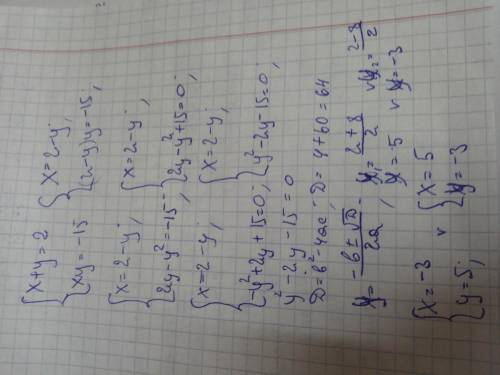 {x+y=2
{xy=-15
{x=2-y;
{(2-y)y=-15;
{x=2-y;
{2y-y²=-15;
{x=2-y;
{2y-y²+15=0;
{x=2-y;
{-y²+2y+15=0;
{x=2-y;
{y²-2y-15=0;
y²-2y-15=0
D=b²-4ac; D=4+60=64
y=(-b±√D)/2a; y₁=(2+8)/2 v y₂=(2-8)/2
y=5 v y=-3
{x=-3 v {x=5
{y=5; {y=-3